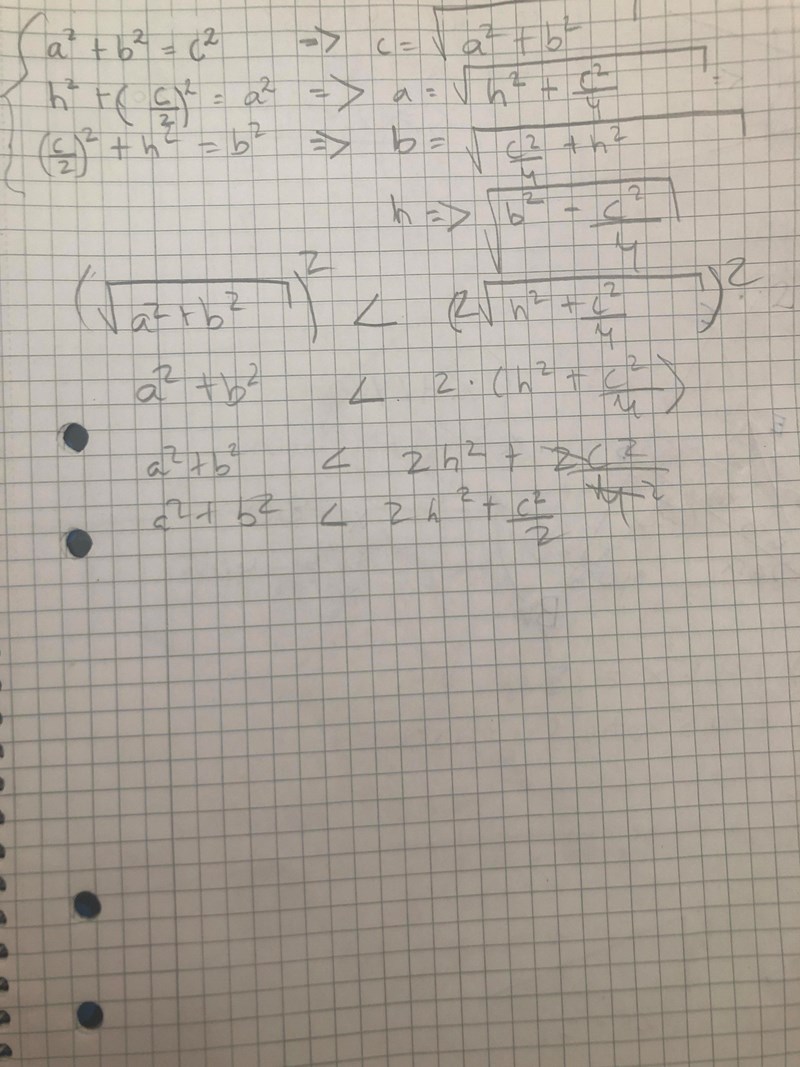 a² + b² = c² => c = √(a² + b²)
h² + (c/2)² = a² => a = √(h² + c²/4)
(c/2)² + h² = b² => b = √(c²/4 + h²)
h => √(b² - c²/4)
(√(a² + b²))² < (2√(h² + c²/4))²
a² + b² < 2 · (h² + c²/4)
a² + b² < 2h² + 2c²/4 2
a² + b² < 2h² + c²/2